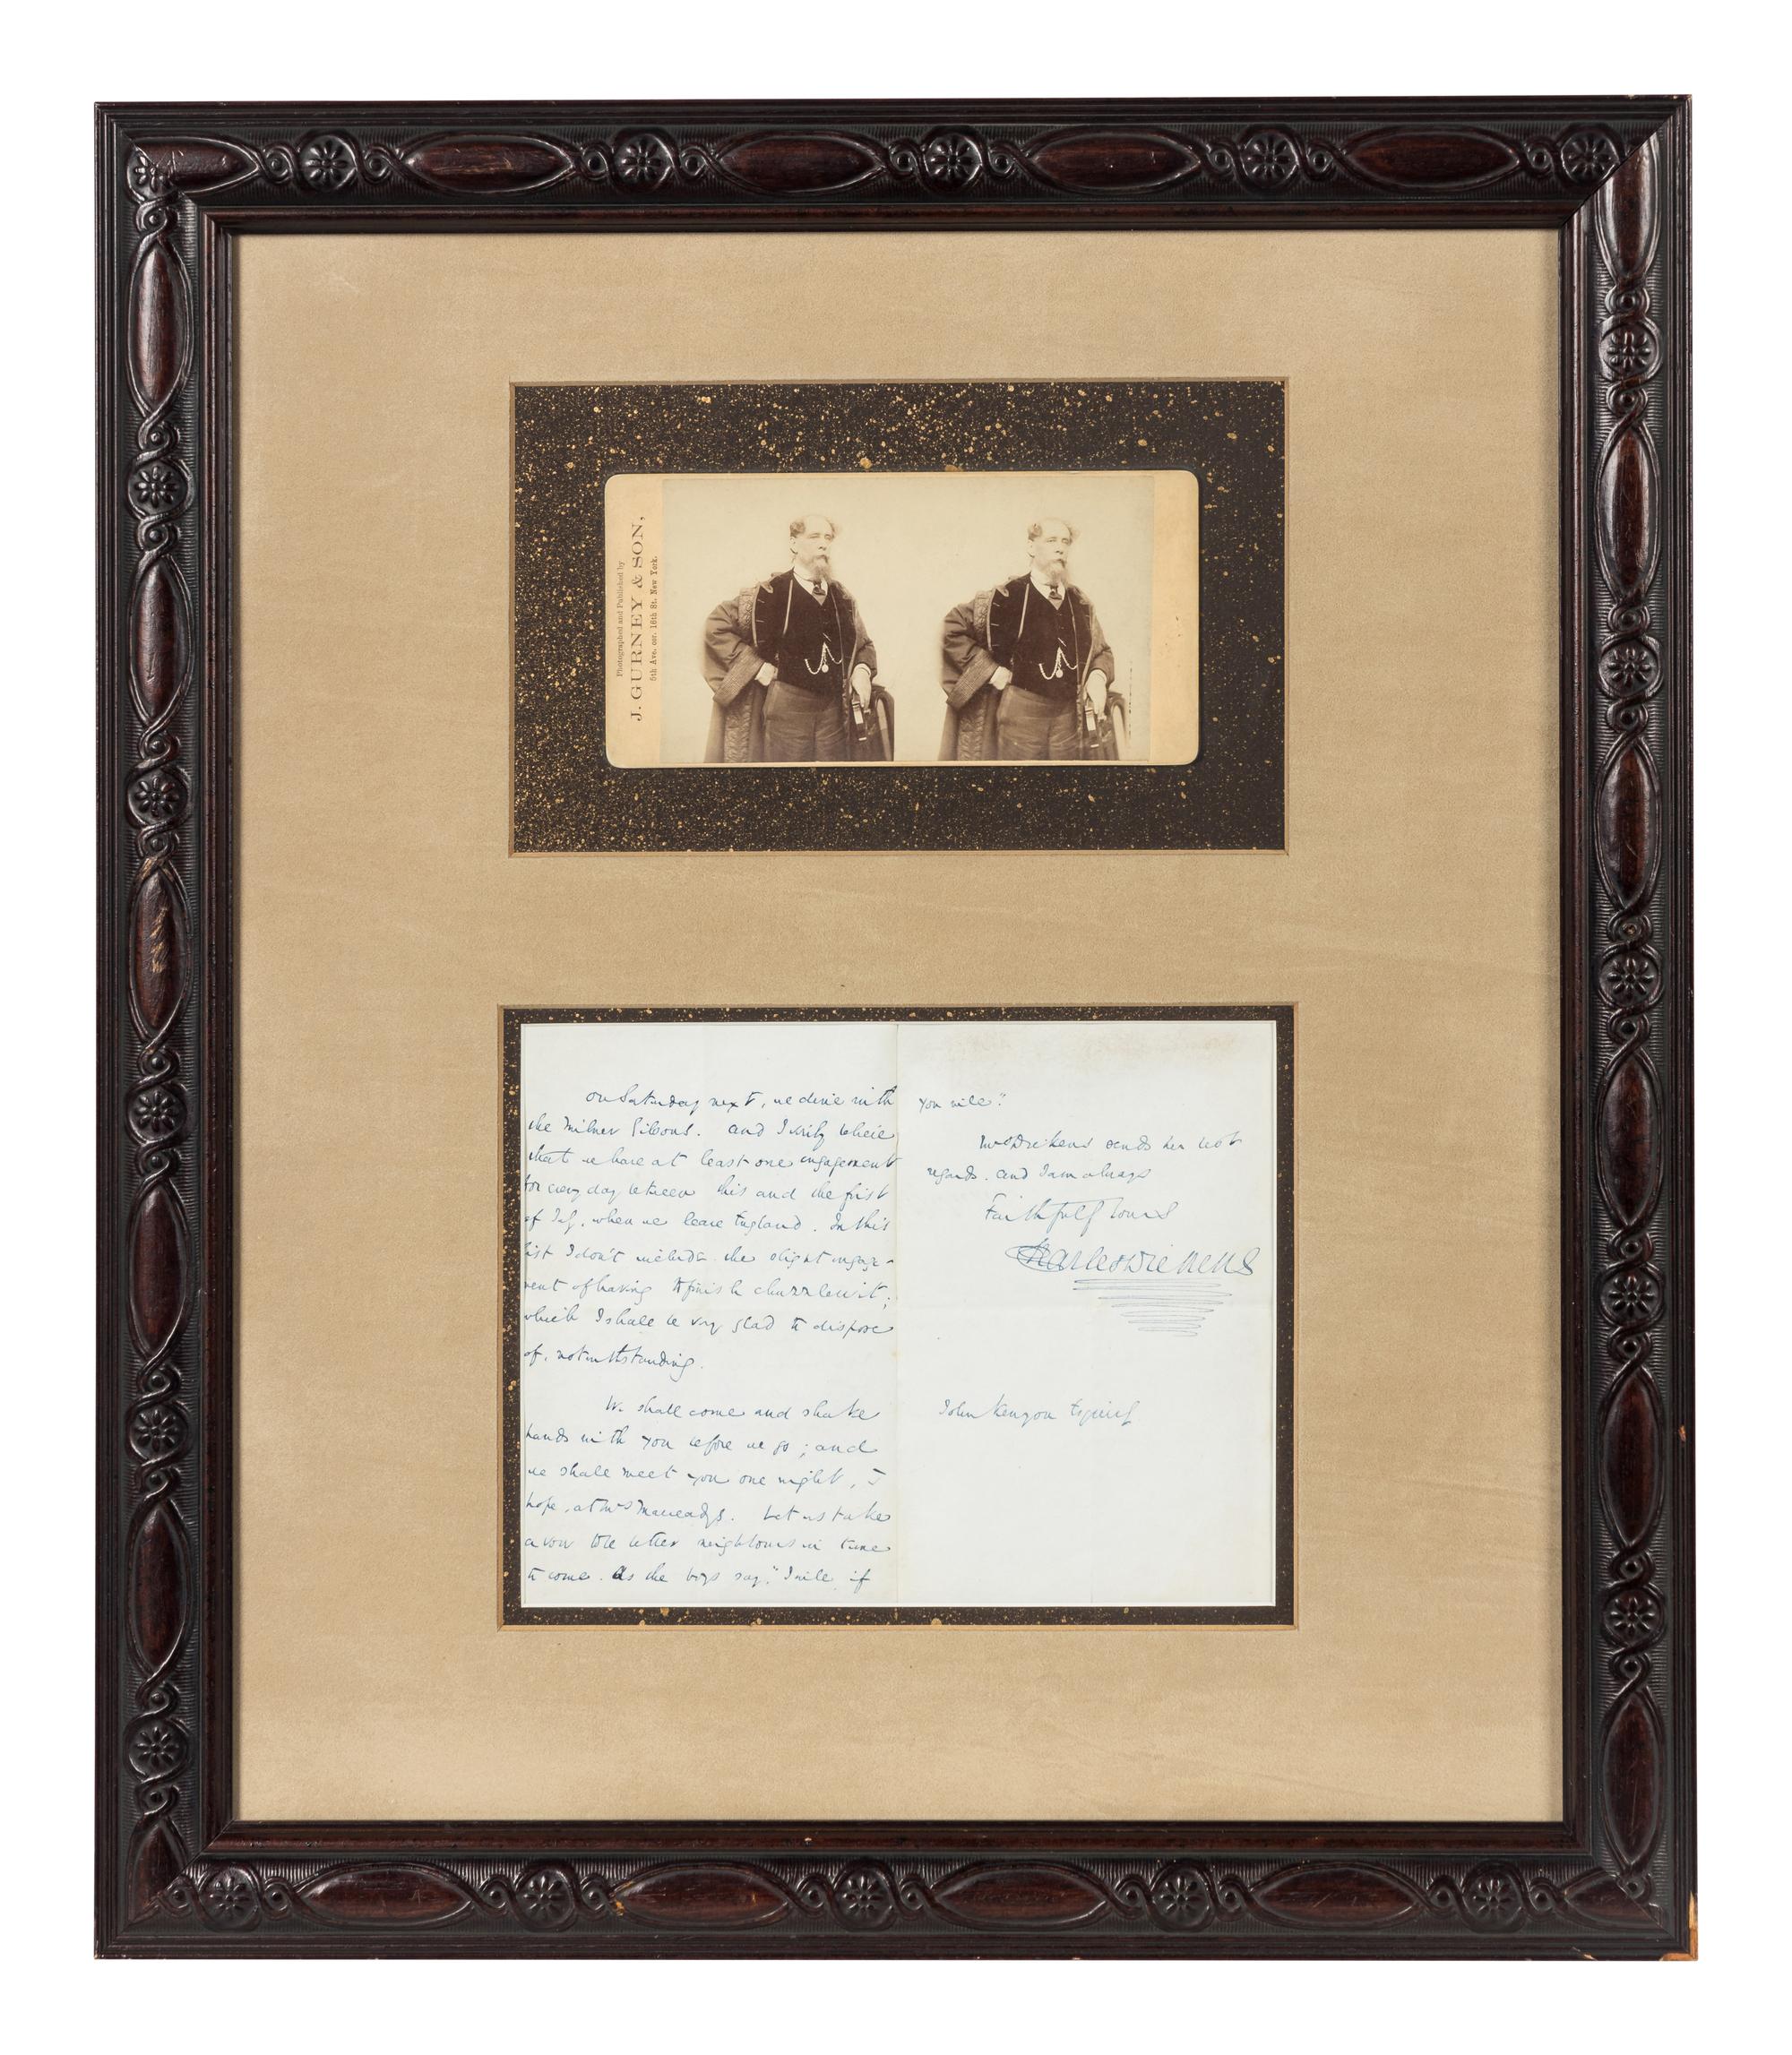 Photographed and Published by
J. GURNEY & SON,
5th Ave. cor. 16th St. New York.
On Saturday next, we dine with
the Milner Gibsons. and I verily believe
that we have at least one engagement
for every day between this and the first
of July, when we leave England. In this
list I don't include the slight engage-
ment of having to finish Chuzzlewit;
which I shall be very glad to dispose
of, notwithstanding.
We shall come and shake
hands with you before we go; and
we shall meet you one night, I
hope, at Mrs Macready's. Let us take
a vow to be better neighbours in time
to come. As the boys say, "I will, if
you will."
Mrs Dickens sends her best
regards. and I am always
Faithfully Yours
Charles Dickens
John Kenyon Esquire